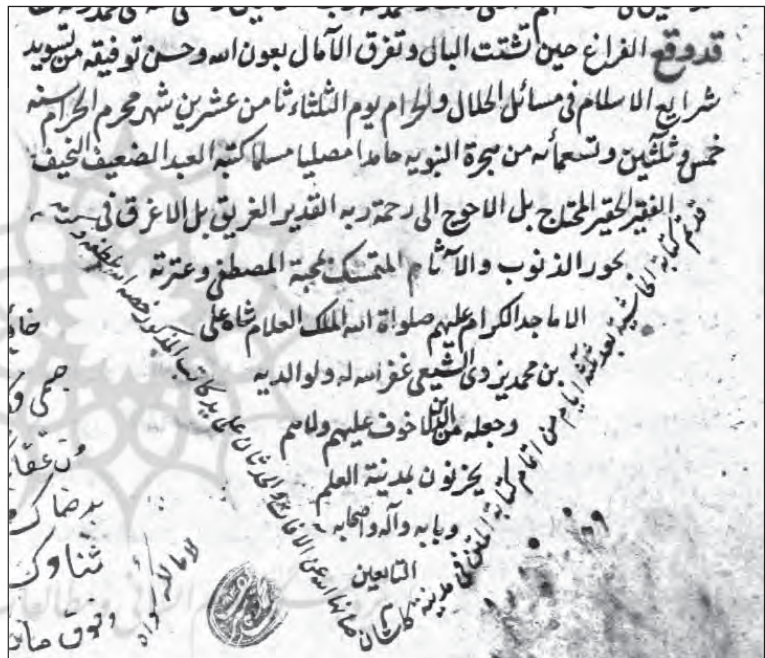 قد وقع الفراغ حين تشتت البال وتفرق الآمال بعون الله وحسن توفيقه من تسويد
شرايع الاسلام فى مسائل الحلال والحرام يوم الثلثاء ثامن عشرين شهر محرم الحرام سنه
خمس وثلثين وتسعمأئه من هجرة النبويه حامدا مصليا مسلما كتبه العبد الضعيف النحيف
الفقير الحقير المحتاج بل الاحوج الى رحمة ربه القدير الغريق بل الاغرق فى
بحور الذنوب والآثام المتمسك بمحبة المصطفى وعترته
الاماجد الكرام عليهم صلواة الله الملك العلام شاه على
بن محمد يزدى الشيعى غفر الله له ولوالديه
وجعله من الذين لا خوف عليهم ولا هم
يحزنون بمدينة العلم
وبابه وآله واصحابه
التابعين
قد تم كتابة الحاشية بعد ثلثة ايام من اتمام كتابة المتن فى مدينة كاشان
صانها الله عن الآفات والحدثان على يد كاتب المذكور خصه الله بلطفه